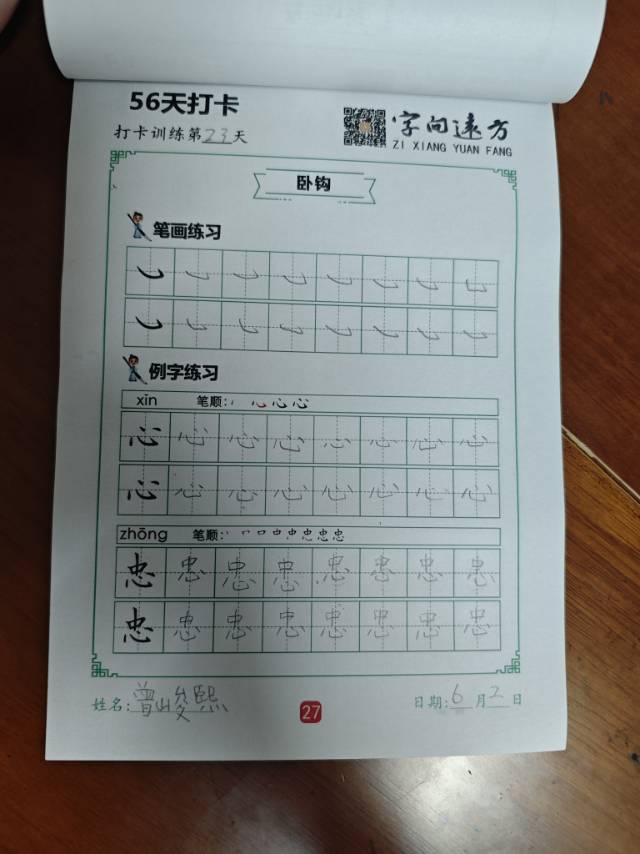 56天打卡
打卡训练第23天
字向远方
ZI XIANG YUAN FANG
卧钩
笔画练习
例字练习
xīn 笔顺: 心
心 心 心 心 心 心 心 心
心 心 心 心 心 心 心 心
zhōng 笔顺: 丨 口 口 中 中 忠 忠 忠
忠 忠 忠 忠 忠 忠 忠 忠
忠 忠 忠 忠 忠 忠 忠 忠
姓名: 曾峻熙 27 日期: 6月2日